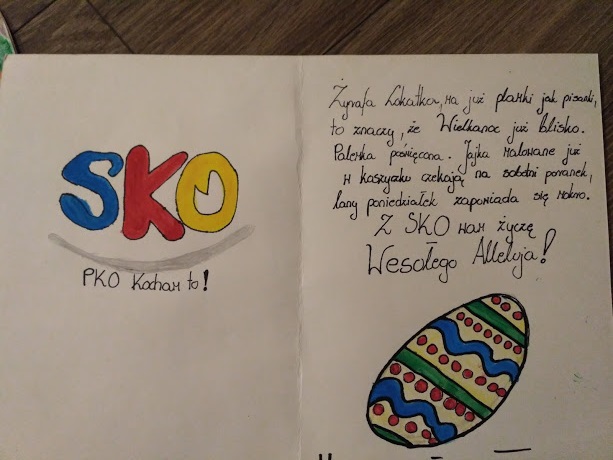 SKO
PKO Kocham to!
Żyrafa Lokatka, ma już plamki jak pisanki,
to znaczy, że Wielkanoc już blisko.
Palemka poświęcona. Jajka malowane już
w koszyczku czekają na sobotni poranek,
lany poniedziałek zapowiada się mokro.
Z SKO wam życzę
Wesołego Alleluja!